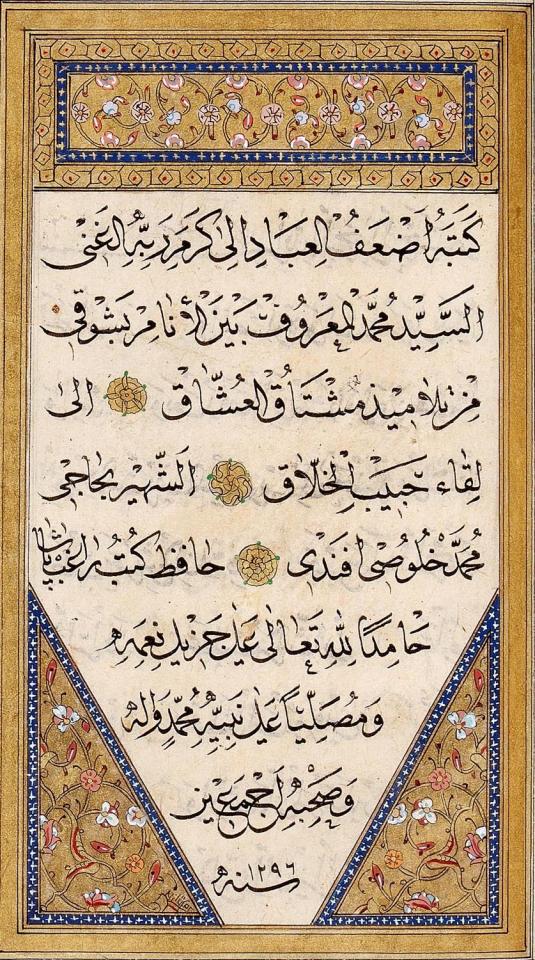 كَتَبَهُ أَضْعَفُ الْعِبَادِ اِلٰى كَرَمِ رَبِّهِ الْغَنِىِّ
اَلسَّيِّدُ مُحَمَّدُ الْمَعْرُوفُ بَيْنَ الْأَنَامِ بِشَوْقِى
مِنْ تَلَامِيذِ مُشْتَاقِ الْعُشَّاقِ الى
لِقَاءِ حَبِيبِ الْخَلَّاقِ اَلشَّهِيرِ بِحَاجِى
مُحَمَّدْ خُلُوصِى افَندِى حَافِظِ كُتُبِ راغب پاشا
حَامِدًا لِلّٰهِ تَعَالٰى عَلٰى جَزِيلِ نِعَمِهِ
وَمُصَلِّيًا عَلٰى نَبِيِّهِ مُحَمَّدٍ وَاٰلِهِ
وَصَحْبِهِ أَجْمَعِينَ
سنه ١٢٩٦